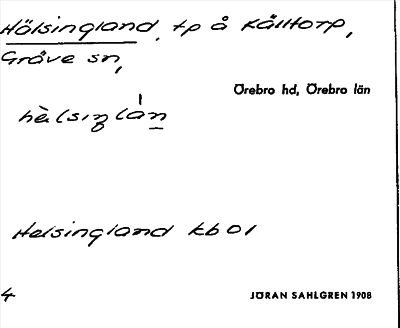 Hälsingland, tp å Kålltorp,
Gräve sn,
Örebro hd, Örebro län
Helsingland kb 01
4
JÖRAN SAHLGREN 1908